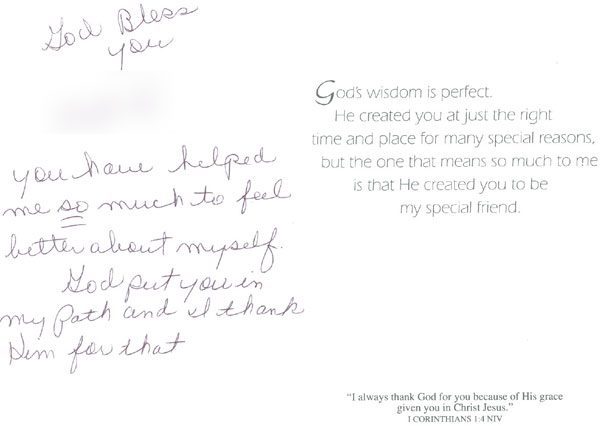 God Bless
you
you have helped
me so much to feel
better about myself.
God put you in
my path and I thank
Him for that
God's wisdom is perfect.
He created you at just the right
time and place for many special reasons,
but the one that means so much to me
is that He created you to be
my special friend.
"I always thank God for you because of His grace
given you in Christ Jesus."
I CORINTHIANS 1:4 NIV